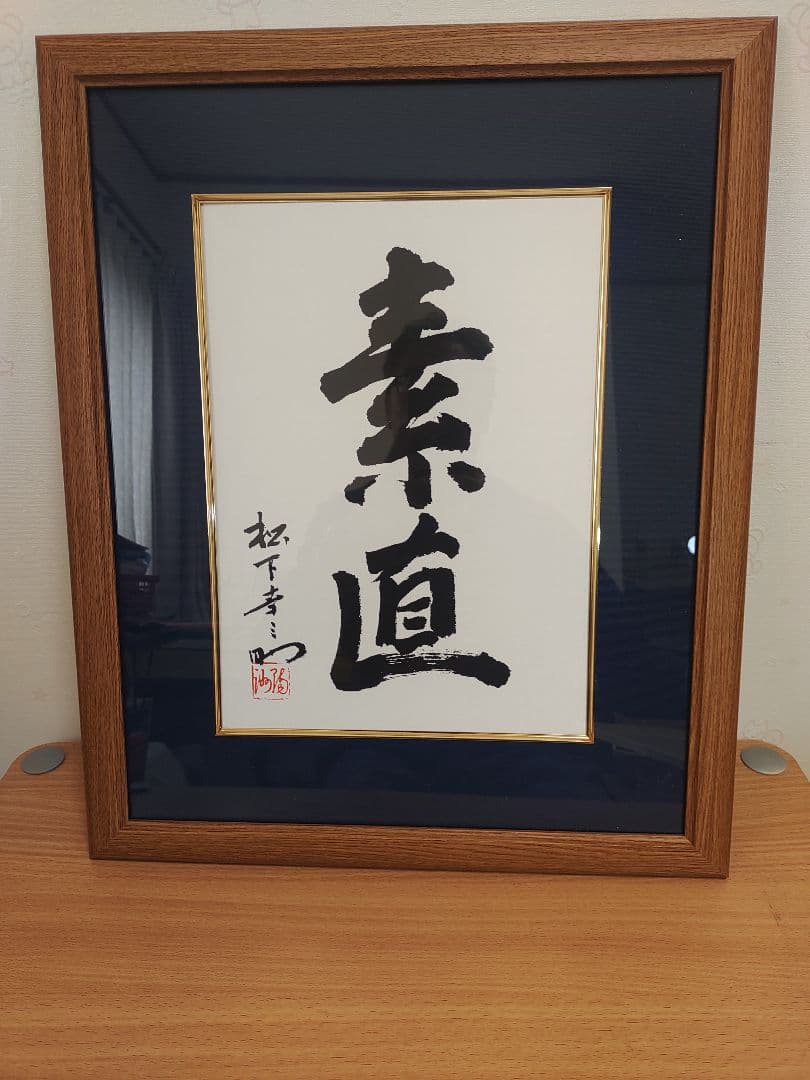 素直
松下幸之助